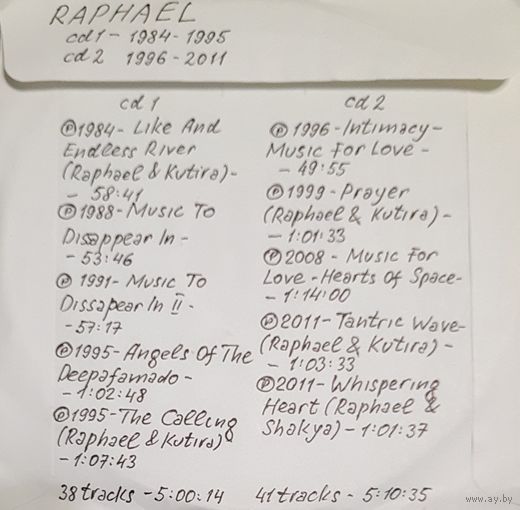 RAPHAEL
cd1 - 1984-1995
cd2 1996-2011
cd1
℗1984- Like And
Endless River
(Raphael & Kutira)-
- 58:41
℗1988- Music To
Disappear In -
- 53:46
℗ 1991- Music To
Dissapear In II -
- 57:17
℗1995- Angels Of The
Deepafamado -
- 1:02:48
℗1995- The Calling
(Raphael & Kutira)-
- 1:07:43
38 tracks - 5:00:14
cd2
℗1996-Intimacy-
Music For Love -
- 49:55
℗1999- Prayer
(Raphael & Kutira) -
- 1:01:33
℗2008 - Music For
Love - Hearts Of Space-
- 1:14:00
℗2011- Tantric Wave-
(Raphael & Kutira) -
- 1:03:33
℗2011- Whispering
Heart (Raphael &
Shakya) - 1:01:37
41 tracks - 5:10:35
www.ay.by